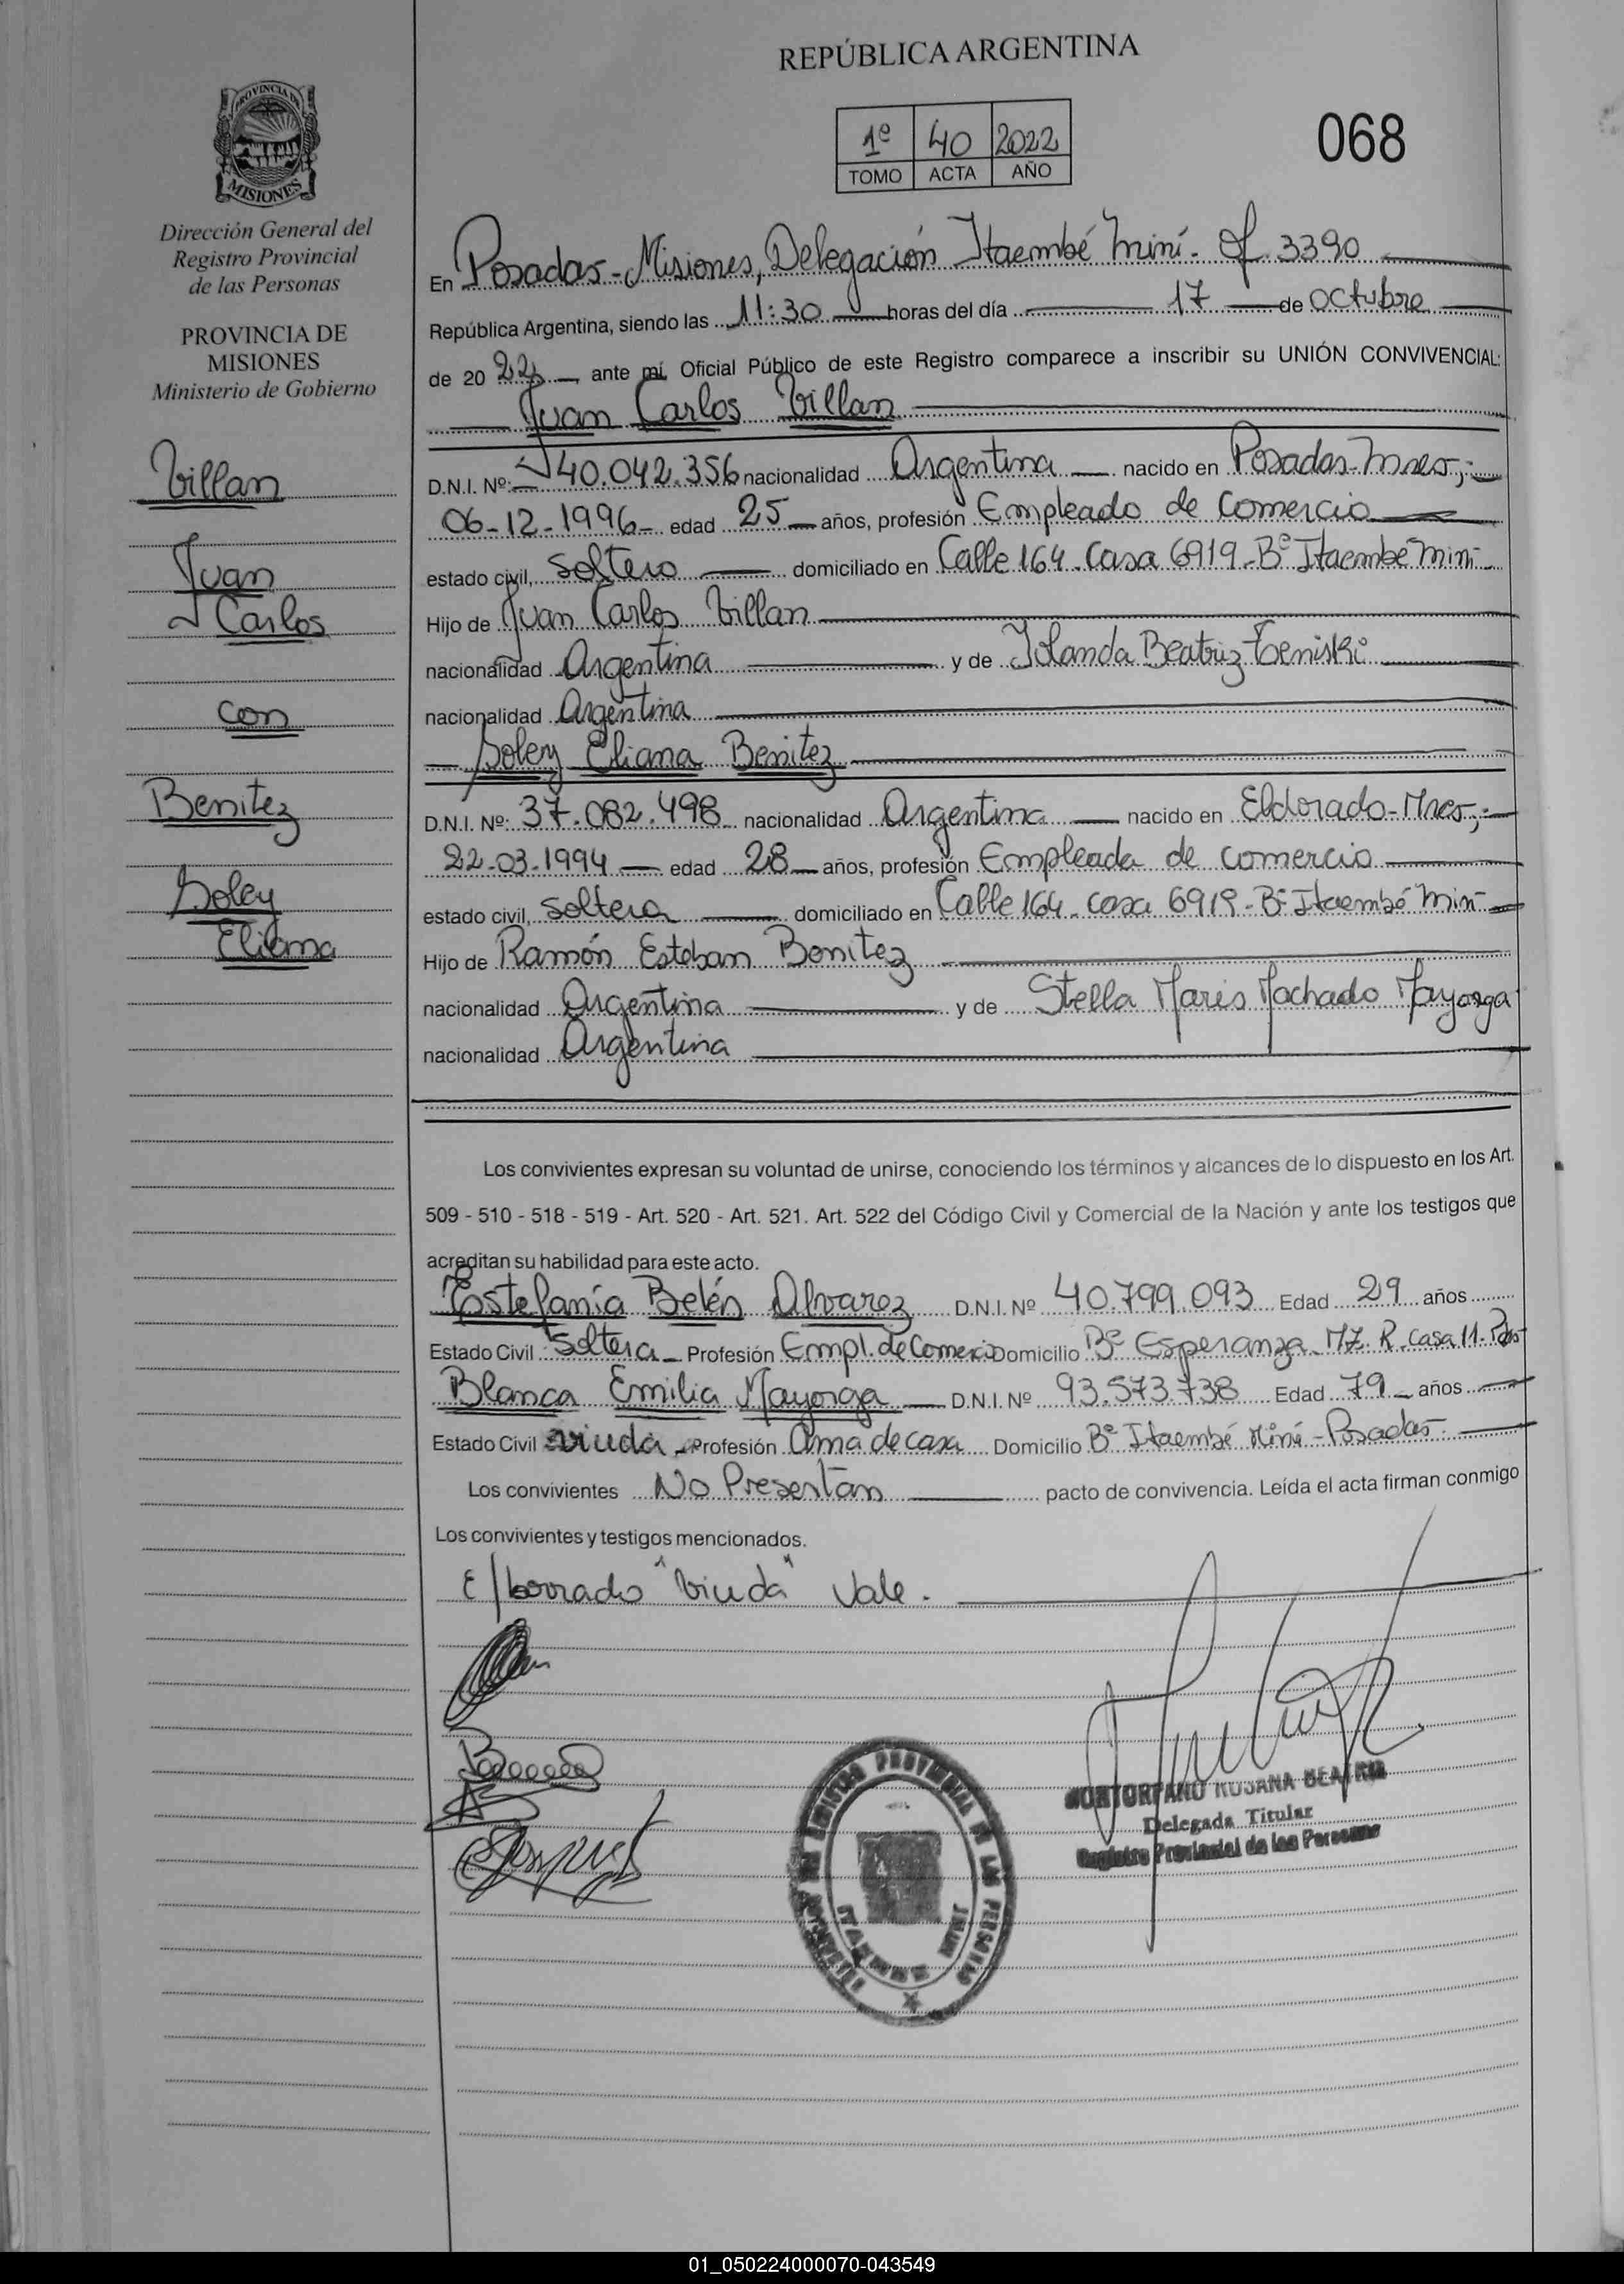 REPÚBLICA ARGENTINA
1º 40 2022
TOMO ACTA AÑO
068
PROVINCIA DE
MISIONES
Dirección General del
Registro Provincial
de las Personas
PROVINCIA DE
MISIONES
Ministerio de Gobierno
Villan
Juan
Carlos
con
Benitez
Soley
Eliana
En Posadas - Misiones, Delegación Itaembé Miní - Of. 3390
República Argentina, siendo las 11:30 horas del día 17 de Octubre
de 2022, ante mí, Oficial Público de este Registro comparece a inscribir su UNIÓN CONVIVENCIAL:
Juan Carlos Villan
D.N.I. Nº: 40.042.356 nacionalidad Argentina nacido en Posadas-Mnes;-
06-12-1996- edad 25 años, profesión Empleado de Comercio
estado civil, Soltero domiciliado en Calle 164 - Casa 6919 - Bº Itaembé Miní
Hijo de Juan Carlos Villan
nacionalidad Argentina y de Iolanda Beatriz
nacionalidad Argentina
Soley Eliana Benitez
D.N.I. Nº: 37.082.498 nacionalidad Argentina nacido en Eldorado-Mnes;-
22-03-1994 edad 28 años, profesión Empleada de comercio
estado civil, Soltera domiciliado en Calle 164 - casa 6919 - Bº Itaembé Miní
Hijo de Ramón Esteban Benitez
nacionalidad Argentina y de Stella Maris Machado Mayorga
nacionalidad Argentina
Los convivientes expresan su voluntad de unirse, conociendo los términos y alcances de lo dispuesto en los Art.
509 - 510 - 518 - 519 - Art. 520 - Art. 521. Art. 522 del Código Civil y Comercial de la Nación y ante los testigos que
acreditan su habilidad para este acto.
Estefanía Belén Alvarez D.N.I. Nº 40.799.093 Edad 29 años
Estado Civil Soltera - Profesión Empl. de Comercio Domicilio Bº Esperanza - MZ. R. Casa 11. Pdas
Blanca Emilia Mayorga D.N.I. Nº 93.573.738 Edad 79 años
Estado Civil viuda - Profesión Ama de casa Domicilio Bº Itaembé Miní - Posadas
Los convivientes No Presentan pacto de convivencia. Leída el acta firman conmigo
Los convivientes y testigos mencionados.
E/borrado "viuda" Vale.
ROSANA BEATRIZ
Delegada Titular
Registro Provincial de las Personas
REGISTRO PROVINCIAL DE LAS PERSONAS
ITAEMBE MINI
01_050224000070-043549